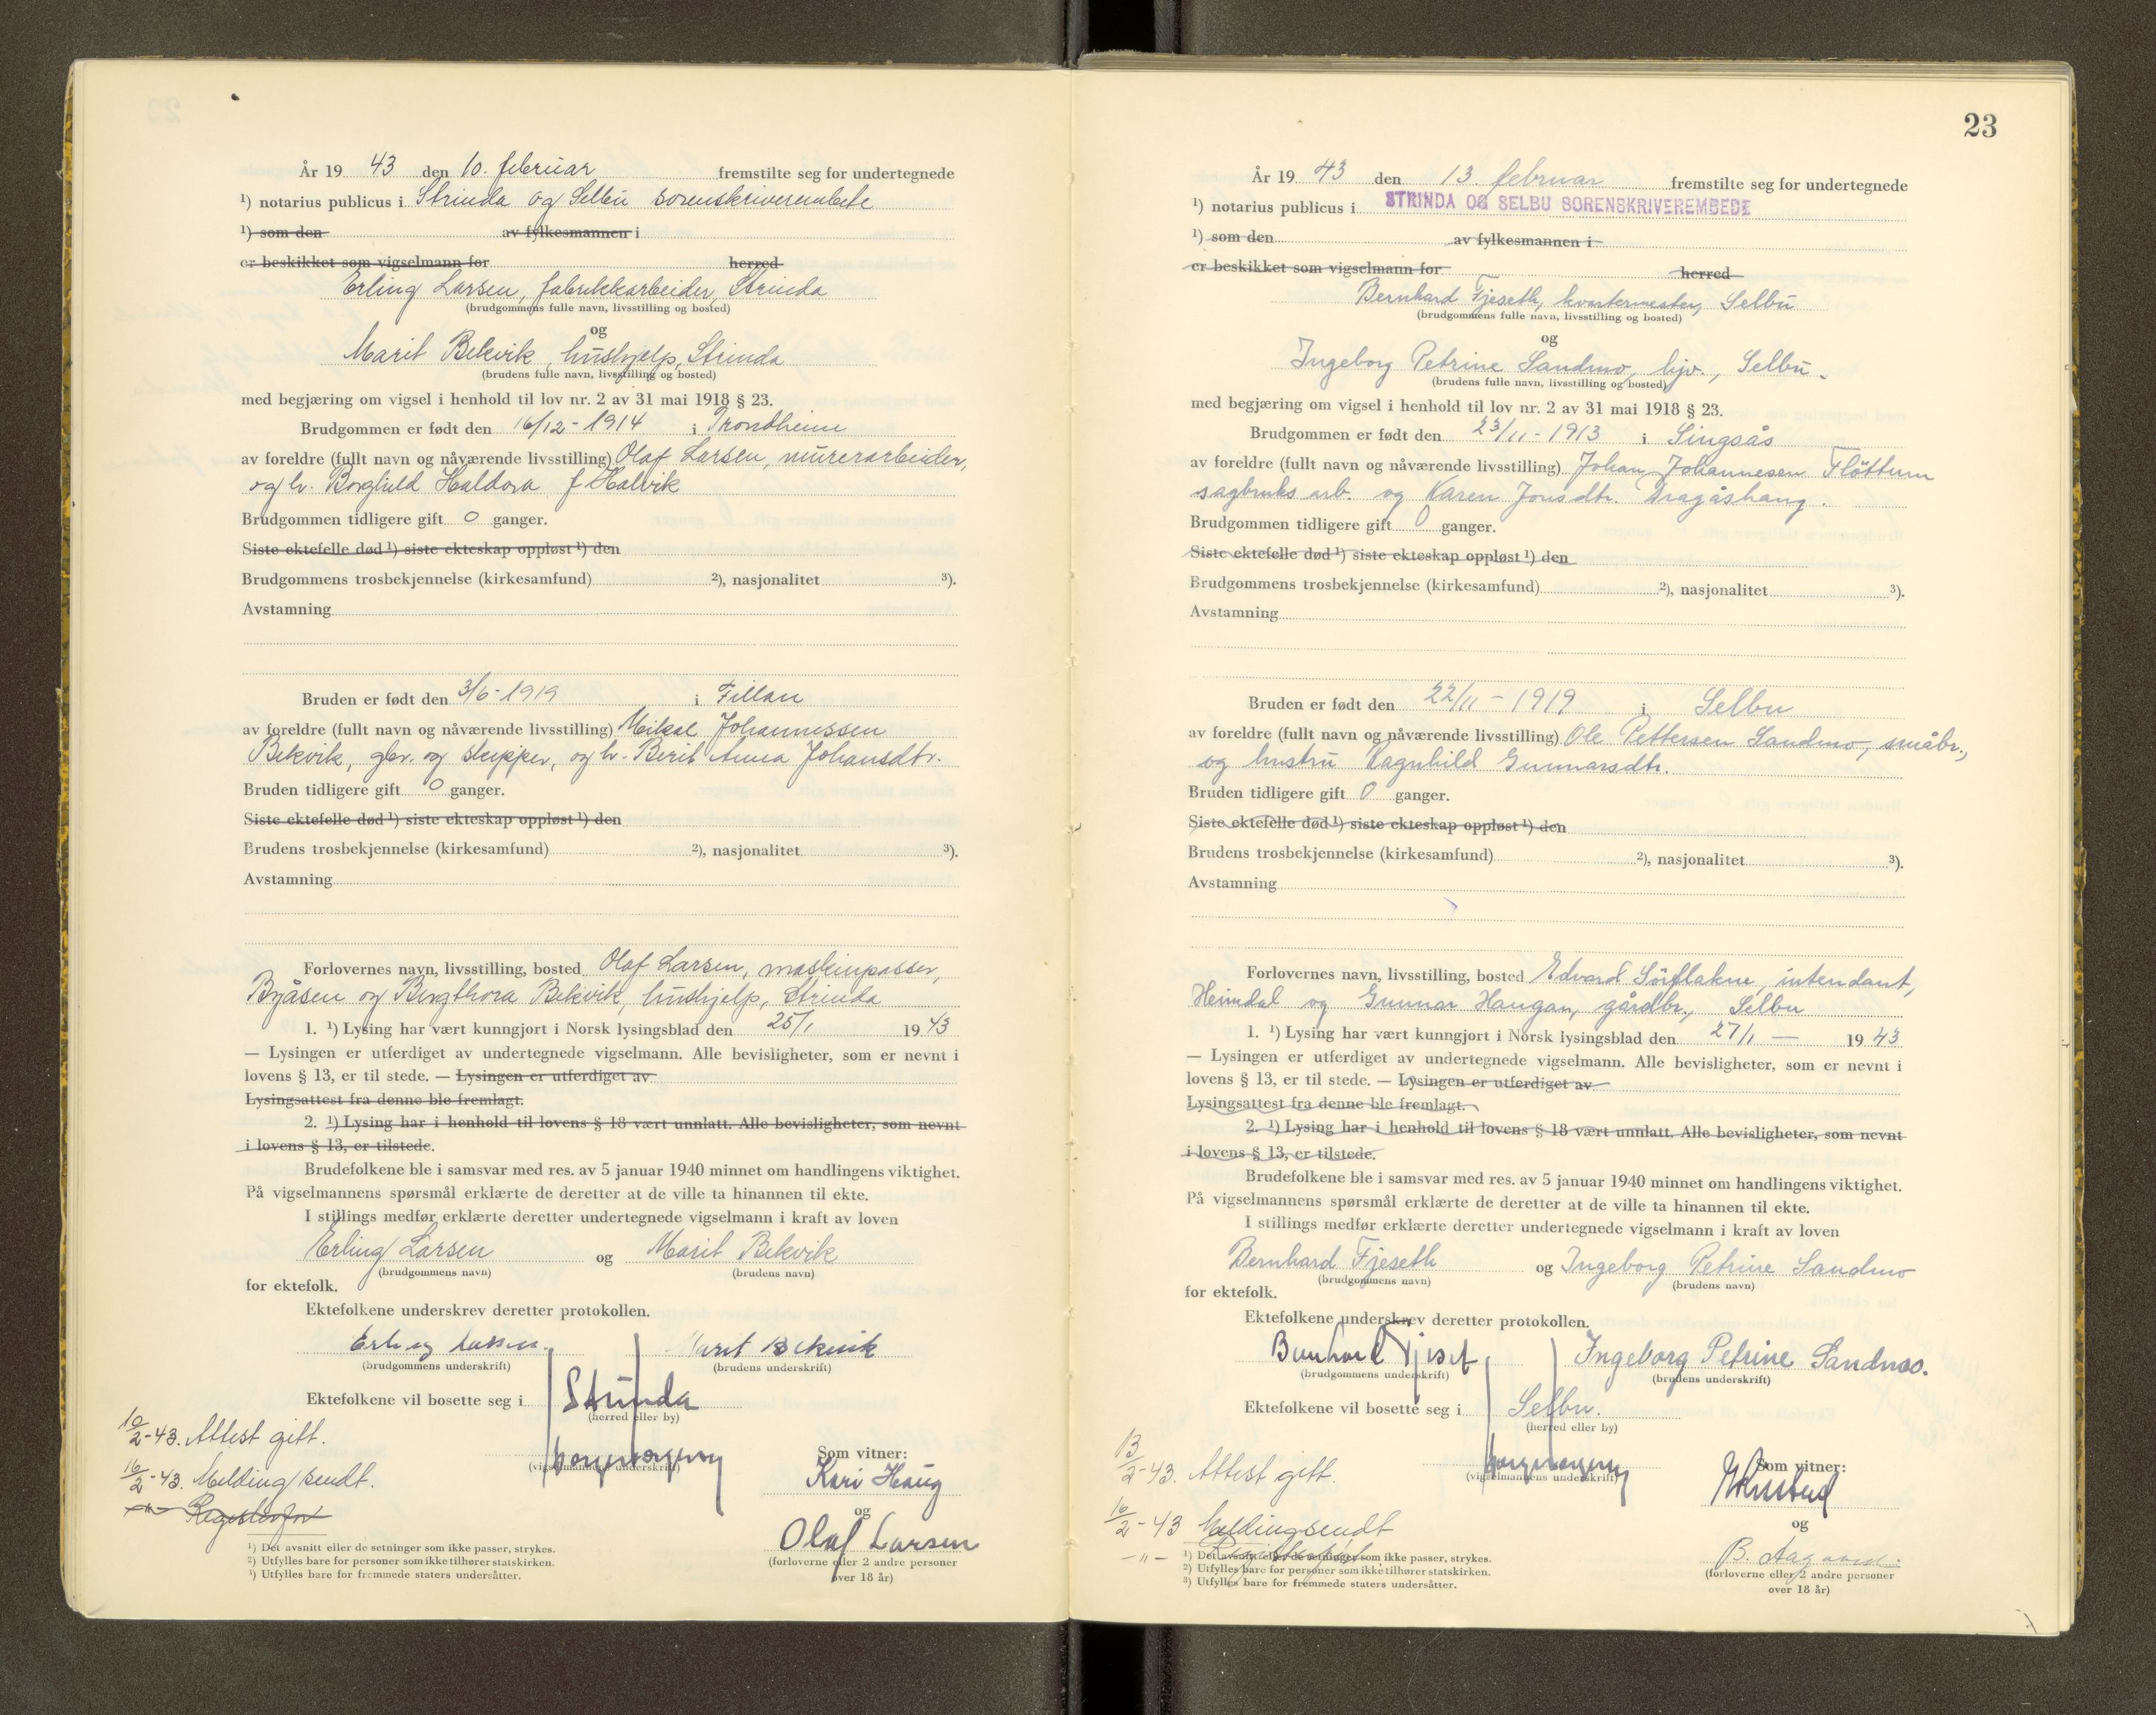 År 19 43 den 10. februar fremstilte seg for undertegnede
¹) notarius publicus i Strinda og Selbu sorenskriverembete
¹) som den av fylkesmannen i
er beskikket som vigselmann for herred
Erling Larsen, fabrikkarbeider, Strinda
(brudgommens fulle navn, livsstilling og bosted)
og
Marit Bekvik, hushjelp, Strinda
(brudens fulle navn, livsstilling og bosted)
med begjæring om vigsel i henhold til lov nr. 2 av 31 mai 1918 § 23.
Brudgommen er født den 16/12-1914 i Trondheim
av foreldre (fullt navn og nåværende livsstilling) Olaf Larsen, murerarbeider,
og h. Borghild Haldora f. Halvik
Brudgommen tidligere gift 0 ganger.
Siste ektefelle død ¹) siste ekteskap oppløst ¹) den
Brudgommens trosbekjennelse (kirkesamfund) ²), nasjonalitet ³).
Avstamning
Bruden er født den 3/6-1919 i Fillan
av foreldre (fullt navn og nåværende livsstilling) Mikal Johannessen
Bekvik, gbr. og skipper, og h. Berit Anna Johansdtr.
Bruden tidligere gift 0 ganger.
Siste ektefelle død ¹) siste ekteskap oppløst ¹) den
Brudens trosbekjennelse (kirkesamfund) ²), nasjonalitet ³).
Avstamning
Forlovernes navn, livsstilling, bosted Olaf Larsen, maskinpasser,
Byåsen og Bergthora Bekvik, hushjelp, Strinda
1. ¹) Lysing har vært kunngjort i Norsk lysingsblad den 25/1 19 43
— Lysingen er utferdiget av undertegnede vigselmann. Alle bevisligheter, som er nevnt i
lovens § 13, er til stede. — Lysingen er utferdiget av
Lysingsattest fra denne ble fremlagt.
2. ¹) Lysing har i henhold til lovens § 18 vært unnlatt. Alle bevisligheter, som nevnt
i lovens § 13, er tilstede.
Brudefolkene ble i samsvar med res. av 5 januar 1940 minnet om handlingens viktighet.
På vigselmannens spørsmål erklærte de deretter at de ville ta hinannen til ekte.
I stillings medfør erklærte deretter undertegnede vigselmann i kraft av loven
Erling Larsen og Marit Bekvik
(brudgommens navn) (brudens navn)
for ektefolk.
Ektefolkene underskrev deretter protokollen.
Erling Larsen. Marit Bekvik
(brudgommens underskrift) (brudens underskrift)
Ektefolkene vil bosette seg i Strinda
(herred eller by)
10/2-43. Attest gitt.
(vigselmannens underskrift) Som vitner:
16/2-43. Melding sendt. Kari Haug
-"- Registerført
og
Olaf Larsen
(forloverne eller 2 andre personer
over 18 år)
¹) Det avsnitt eller de setninger som ikke passer, strykes.
²) Utfylles bare for personer som ikke tilhører statskirken.
³) Utfylles bare for fremmede staters undersåtter.
23
År 19 43 den 13. februar fremstilte seg for undertegnede
¹) notarius publicus i STRINDA OG SELBU SORENSKRIVEREMBEDE
¹) som den av fylkesmannen i
er beskikket som vigselmann for herred
Bernhard Fjeseth, kvartermester, Selbu
(brudgommens fulle navn, livsstilling og bosted)
og
Ingeborg Petrine Sandmo, hjv., Selbu.
(brudens fulle navn, livsstilling og bosted)
med begjæring om vigsel i henhold til lov nr. 2 av 31 mai 1918 § 23.
Brudgommen er født den 23/11-1913 i Singsås
av foreldre (fullt navn og nåværende livsstilling) Johan Johannesen Flöttum
sagbruks arb. og Karen Jonsdtr. Dragåshaug.
Brudgommen tidligere gift 0 ganger.
Siste ektefelle død ¹) siste ekteskap oppløst ¹) den
Brudgommens trosbekjennelse (kirkesamfund) ²), nasjonalitet ³).
Avstamning
Bruden er født den 22/11-1919 i Selbu
av foreldre (fullt navn og nåværende livsstilling) Ole Pettersen Sandmo, småbr.,
og hustru Ragnhild Gunnarsdtr.
Bruden tidligere gift 0 ganger.
Siste ektefelle død ¹) siste ekteskap oppløst ¹) den
Brudens trosbekjennelse (kirkesamfund) ²), nasjonalitet ³).
Avstamning
Forlovernes navn, livsstilling, bosted Edvard Sörflakne, intendant,
Heimdal og Gunnar Haugan, gårdbr., Selbu
1. ¹) Lysing har vært kunngjort i Norsk lysingsblad den 27/1 — 19 43
— Lysingen er utferdiget av undertegnede vigselmann. Alle bevisligheter, som er nevnt i
lovens § 13, er til stede. — Lysingen er utferdiget av
Lysingsattest fra denne ble fremlagt.
2. ¹) Lysing har i henhold til lovens § 18 vært unnlatt. Alle bevisligheter, som nevnt
i lovens § 13, er tilstede.
Brudefolkene ble i samsvar med res. av 5 januar 1940 minnet om handlingens viktighet.
På vigselmannens spørsmål erklærte de deretter at de ville ta hinannen til ekte.
I stillings medfør erklærte deretter undertegnede vigselmann i kraft av loven
Bernhard Fjeseth og Ingeborg Petrine Sandmo
(brudgommens navn) (brudens navn)
for ektefolk.
Ektefolkene underskrev deretter protokollen.
Bernhard Fjeset Ingeborg Petrine Sandmo.
(brudgommens underskrift) (brudens underskrift)
Ektefolkene vil bosette seg i Selbu.
(herred eller by)
13/2-43. Attest gitt.
(vigselmannens underskrift) Som vitner:
16/2-43 Melding sendt
og
-"-
B. Aagaard.
(forloverne eller 2 andre personer
over 18 år)
¹) Det avsnitt eller de setninger som ikke passer, strykes.
²) Utfylles bare for personer som ikke tilhører statskirken.
³) Utfylles bare for fremmede staters undersåtter.